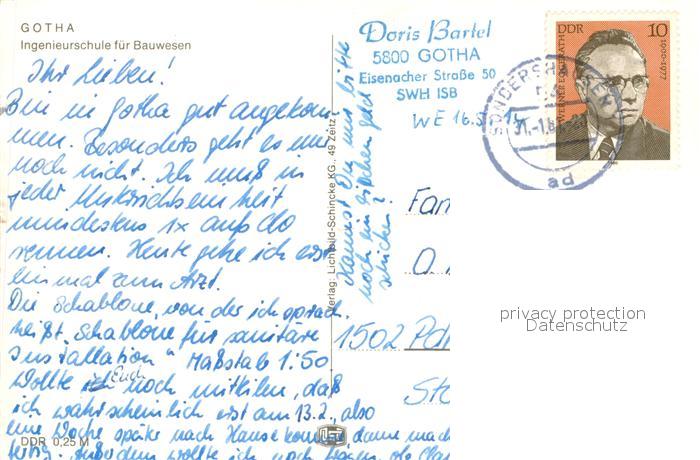 GOTHA
Ingenieurschule für Bauwesen
Ihr Lieben!
Bin in Gotha gut angekom-
men. Besonders geht es mir
noch nicht. Ich muß in
jeder Unterrichtseinheit
mindestens 1x aufs Clo
rennen. Heute gehe ich erst
einmal zum Arzt.
Die Schablone, von der ich sprach,
heißt „Schablone für sanitäre
Installation" Maßstab 1:50
Wollte Euch noch mitteilen, daß
ich wahrscheinlich erst am 13.2., also
eine Woche später nach Hause komme, dann
wollte ich noch fragen, ob
DDR 0,25 M
Kannst Du mir bitte
noch ein bißchen Geld
schicken?
Verlag: Lichtbild-Schincke KG., 49 Zeitz
Doris Bartel
5800 GOTHA
Eisenacher Straße 50
SWH ISB
WE 16.5
DDR 10
WERNER EGGERATH 1900-1977
SONDERSHAUSEN
31.-1.81
ad
Fam
O.
1502 Pot
Sto
privacy protection
Datenschutz